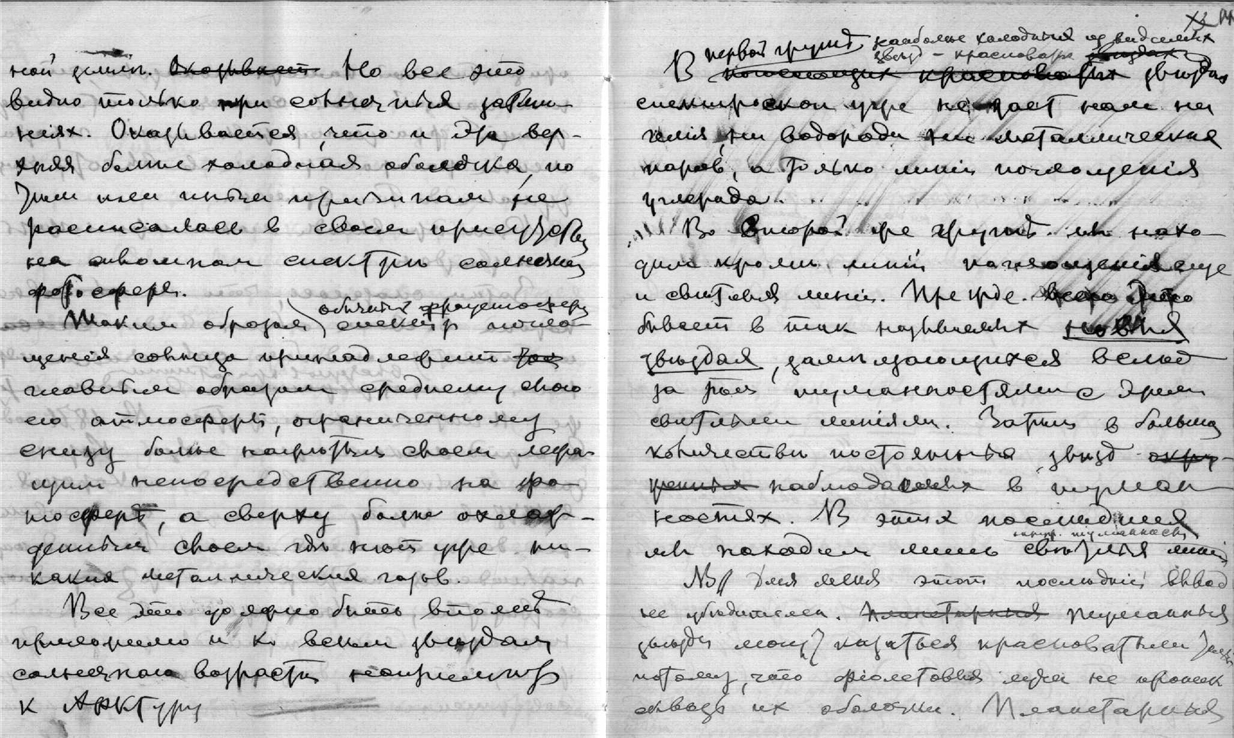 ной земли. Оказывает Но все это
видно только при солнечных затме-
ніях. Оказывается, что и эта вер-
хняя более холодная оболочка, по
тем или иным причинам не
расписалась в своем присутствіи
на обычном спектре солнечной
фотосферы.
Таким образом обычный фраунгоферов
спектр погло-
щенія солнца принадлежит
главным образом среднему слою
его атмосферы, ограниченному
снизу более нагретым слоем лежа-
щим непосредственно на фо-
тосфере, а сверху более охлаж-
денным слоем где нет уже ни-
каких металлических паров.
Все это должно быть вполне
применимо и ко всем звездам
солнечного возраста например
к Арктуру
В первой группе наиболее холодных из видимых
звезд – красноватых звездах
спектроскоп уже не дает нам ни
гелія, ни водорода ни металлических
паров, а только линіи поглощенія
углерода.
Во второй же группе мы нахо-
дим кроме линій поглощенія еще
и светлыя линіи. Прежде всего это
бывает в так называемых новых
звездах, замещающихся вслед
за тем туманностями с этими
светлыми линіями. Затем в большом
количестве постоянных звезд окру-
женных наблюдаемых в туман-
ностях. В этих последних
мы находим лишь светлыя линіи
NB Для меня этот последній вывод
не убедителен. Планетарныя туманныя
звезды могут казаться красноватыми
потому, что фіолетовыя лучи не проник
сквозь их оболочки. Планетарныя